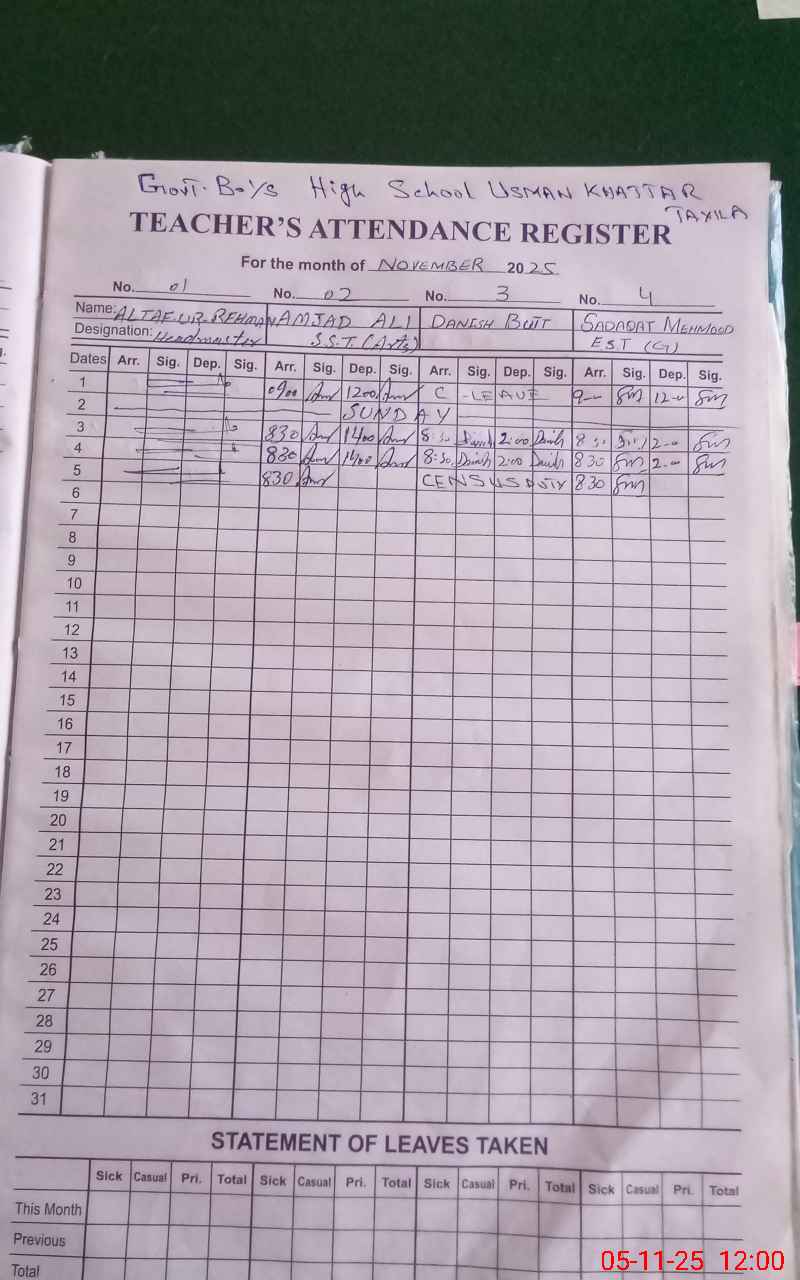 Govt. Boys High School USMAN KHATTAR
TAXILA
TEACHER'S ATTENDANCE REGISTER
For the month of NOVEMBER 2025
No. 01 No. 02 No. 3 No. 4
Name: ALTAF UR REHMAN AMJAD ALI DANISH BUTT SADAQAT MEHMOOD
Designation: Headmaster S.S.T (Arts) EST (G)
Dates Arr. Sig. Dep. Sig. Arr. Sig. Dep. Sig. Arr. Sig. Dep. Sig. Arr. Sig. Dep. Sig.
1 0900 1200 C - LEAVE 9-00 12-00
2 SUNDAY
3 830 1400 8:30 Danish 2:00 Danish 8 30 2-00
4 830 1400 8:30 Danish 2:00 Danish 8 30 2-00
5 830 CENSUS DUTY 8 30
6
7
8
9
10
11
12
13
14
15
16
17
18
19
20
21
22
23
24
25
26
27
28
29
30
31
STATEMENT OF LEAVES TAKEN
Sick Casual Pri. Total Sick Casual Pri. Total Sick Casual Pri. Total Sick Casual Pri. Total
This Month
Previous
Total
05-11-25 12:00